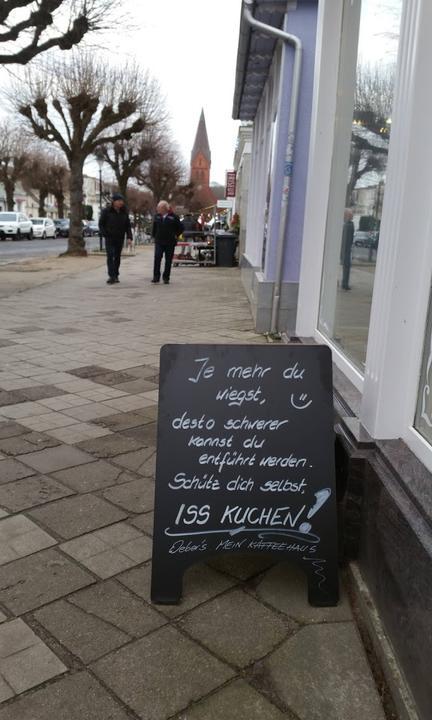 Je mehr du
wiegst,
desto schwerer
kannst du
entführt werden.
Schütz dich selbst,
ISS KUCHEN!
Weber's MEIN KAFFEEHAUS